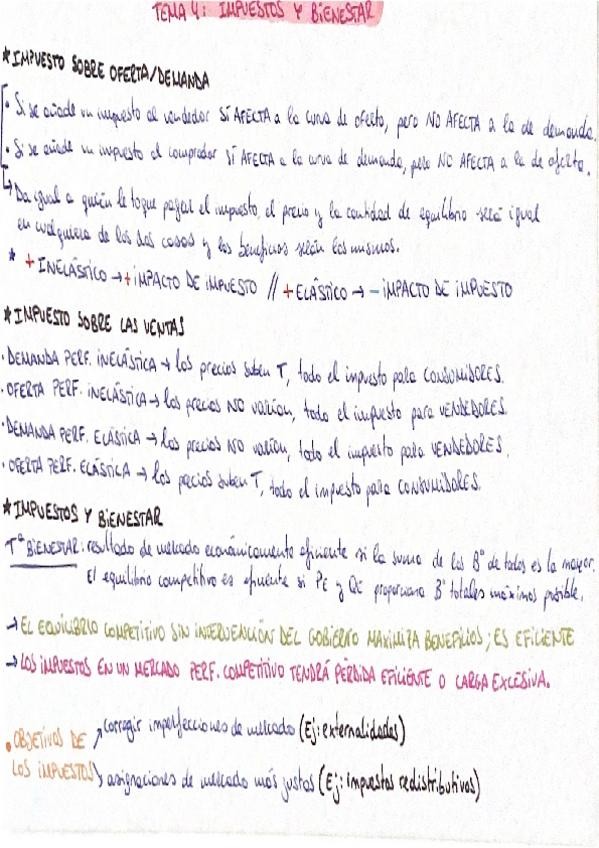 TEMA 4: IMPUESTOS Y BIENESTAR
* IMPUESTO SOBRE OFERTA/DEMANDA
· Si se añade un impuesto al vendedor SÍ AFECTA a la curva de oferta, pero NO AFECTA a la de demanda.
· Si se añade un impuesto al comprador SÍ AFECTA a la curva de demanda, pero NO AFECTA a la de oferta.
↳ Da igual a quién le toque pagar el impuesto, el precio y la cantidad de equilibrio será igual
en cualquiera de los dos casos y los beneficios serán los mismos.
* + INELÁSTICO → + IMPACTO DE IMPUESTO // + ELÁSTICO → - IMPACTO DE IMPUESTO
* IMPUESTO SOBRE LAS VENTAS
· DEMANDA PERF. INELÁSTICA → los precios suben T, todo el impuesto para CONSUMIDORES.
· OFERTA PERF. INELÁSTICA → los precios NO varían, todo el impuesto para VENDEDORES.
· DEMANDA PERF. ELÁSTICA → los precios NO varían, todo el impuesto para VENDEDORES.
· OFERTA PERF. ELÁSTICA → los precios suben T, todo el impuesto para CONSUMIDORES.
* IMPUESTOS Y BIENESTAR
Tª BIENESTAR: resultado de mercado económicamente eficiente si la suma de los Bº de todos es la mayor.
El equilibrio competitivo es eficiente si PE y QE proporciona Bº totales máximos posible.
→ EL EQUILIBRIO COMPETITIVO SIN INTERVENCIÓN DEL GOBIERNO MAXIMIZA BENEFICIOS; ES EFICIENTE
→ LOS IMPUESTOS EN UN MERCADO PERF. COMPETITIVO TENDRÁ PÉRDIDA EFICIENTE O CARGA EXCESIVA.
· OBJETIVOS DE LOS IMPUESTOS
↗ corregir imperfecciones de mercado (Ej: externalidades)
↘ asignaciones de mercado más justas (Ej: impuestos redistributivos)